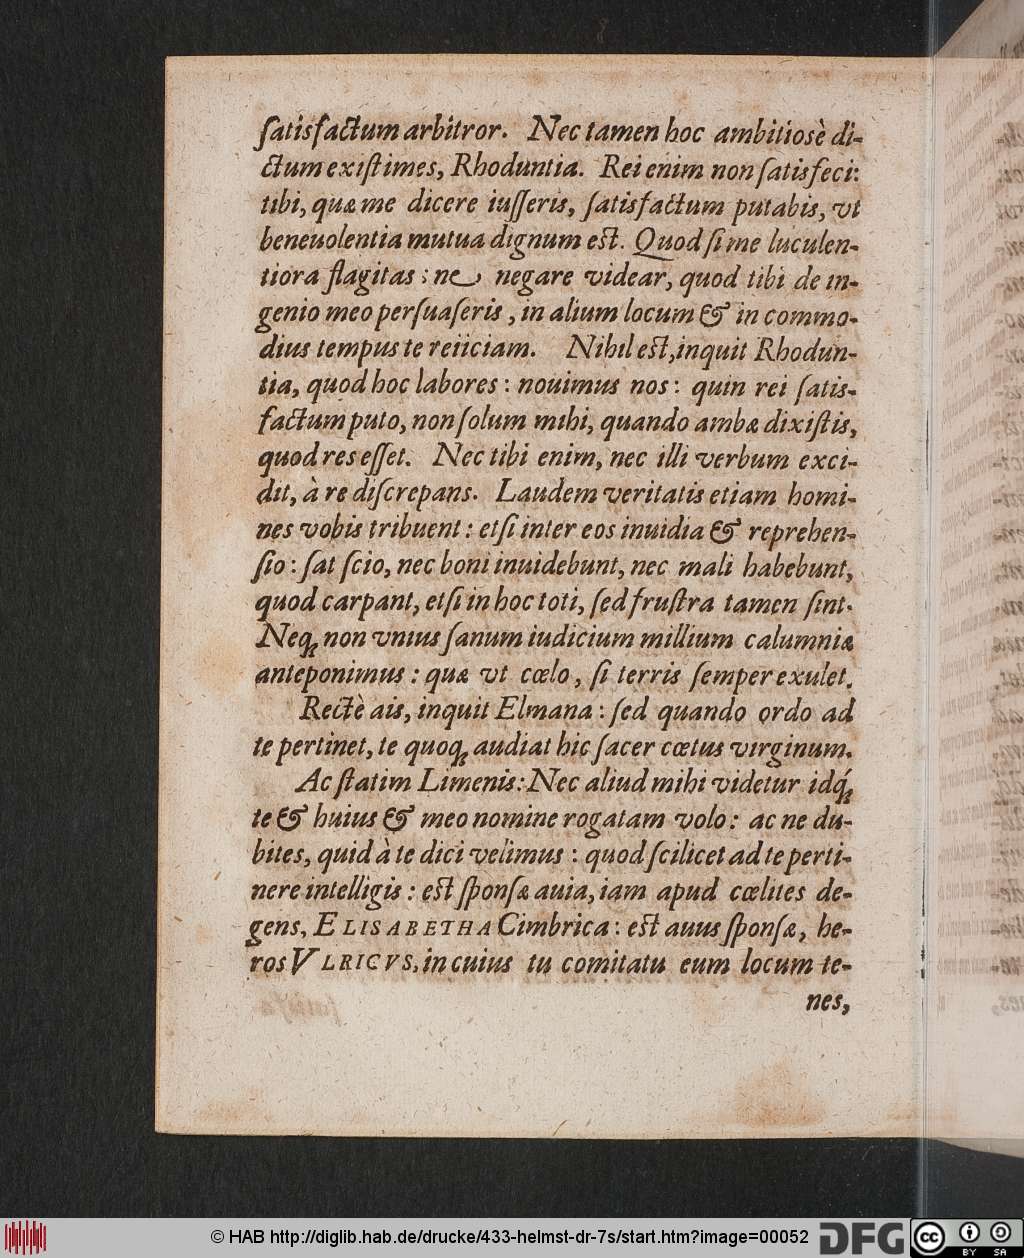 ſatisfactum arbitror. Nec tamen hoc ambitiosè di-
ctum exiſtimes, Rhoduntia. Rei enim non ſatisfeci:
tibi, quæ me dicere iuſſeris, ſatisfactum putabis, vt
beneuolentia mutua dignum eſt. Quod ſi me luculen-
tiora flagitas: ne negare videar, quod tibi de in-
genio meo perſuaſeris, in alium locum & in commo-
dius tempus te reiiciam. Nihil eſt, inquit Rhodun-
tia, quod hoc labores: nouimus nos: quin rei ſatis-
factum puto, non ſolum mihi, quando ambæ dixiſtis,
quod res eſſet. Nec tibi enim, nec illi verbum exci-
dit, à re diſcrepans. Laudem veritatis etiam homi-
nes vobis tribuent: etſi inter eos inuidia & reprehen-
ſio: ſat ſcio, nec boni inuidebunt, nec mali habebunt,
quod carpant, etſi in hoc toti, ſed fruſtra tamen ſint.
Neq; non vnius ſanum iudicium millium calumniæ
anteponimus: quæ vt cœlo, ſi terris ſemper exulet.
Rectè ais, inquit Elmana: ſed quando ordo ad
te pertinet, te quoq; audiat hic ſacer cœtus virginum.
Ac ſtatim Limenis: Nec aliud mihi videtur idq́;
te & huius & meo nomine rogatam volo: ac ne du-
bites, quid à te dici velimus: quod ſcilicet ad te perti-
nere intelligis: eſt ſponſæ auia, iam apud cœlites de-
gens, ELISABETHA Cimbrica: eſt auus ſponſæ, he-
ros VLRICVS, in cuius tu comitatu eum locum te-
nes,
© HAB http://diglib.hab.de/drucke/433-helmst-dr-7s/start.htm?image=00052
DFG
cc BY SA